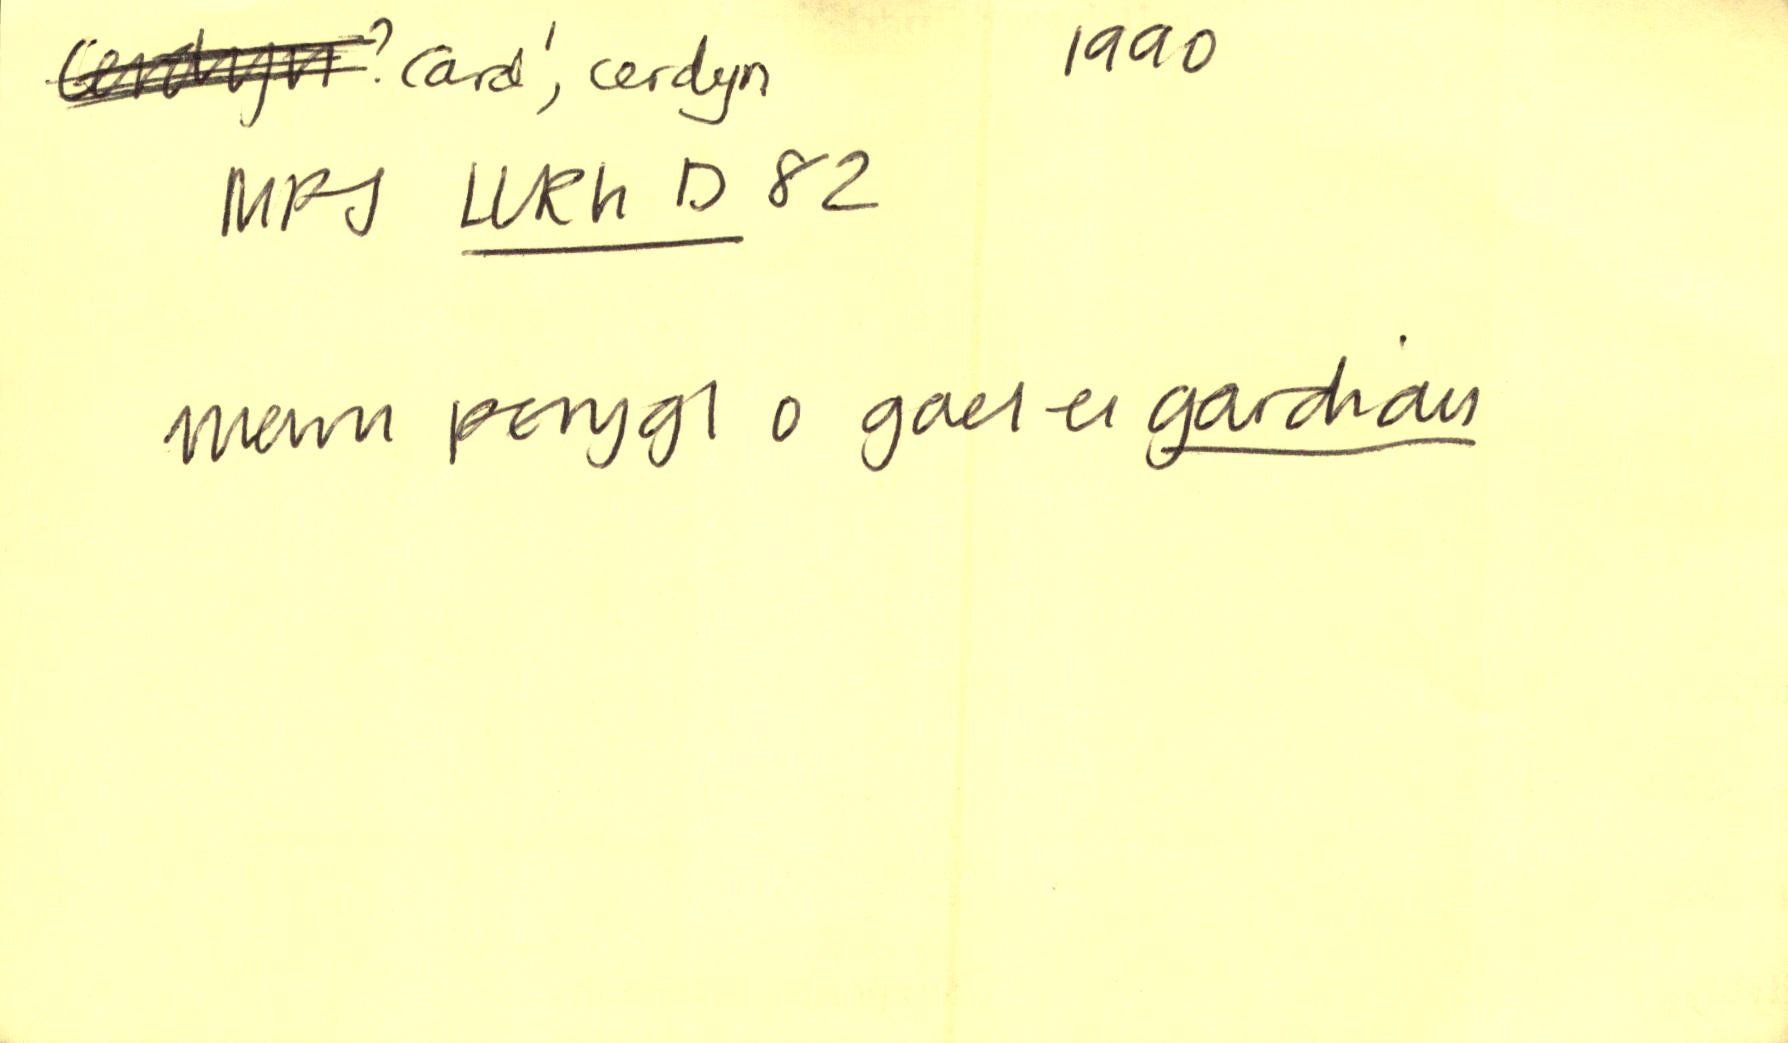 ? card¹, cerdyn 1990
MPJ LURh D 82
mewn perygl o gael ei gardiau